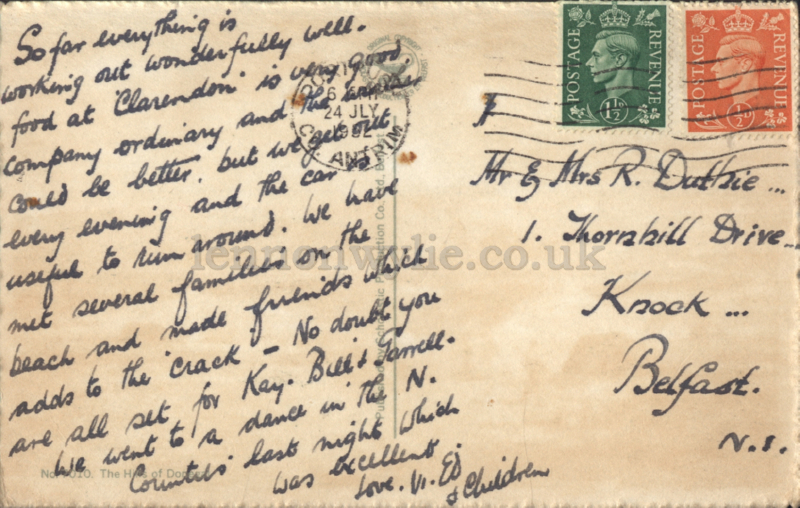 So far everything is
working out wonderfully well.
food at 'Clarendon' is very good,
company ordinary and the weather
could be better, but we get out
every evening and the car is
useful to run around. We have
met several families on the
beach and made friends which
adds to the 'crack' - No doubt you
are all set for Kay. Bill &
We went to a dance in the N.
Counties last night which
was excellent
Love. Vi. Ed
& Children
24 JLY
CO. ANTRIM
POSTAGE REVENUE
1½D
POSTAGE REVENUE
½D
Mr & Mrs R. Duthie...
1. Thornhill Drive...
Knock...
Belfast.
N.I.
lennonwylie.co.uk
The Hills of Don